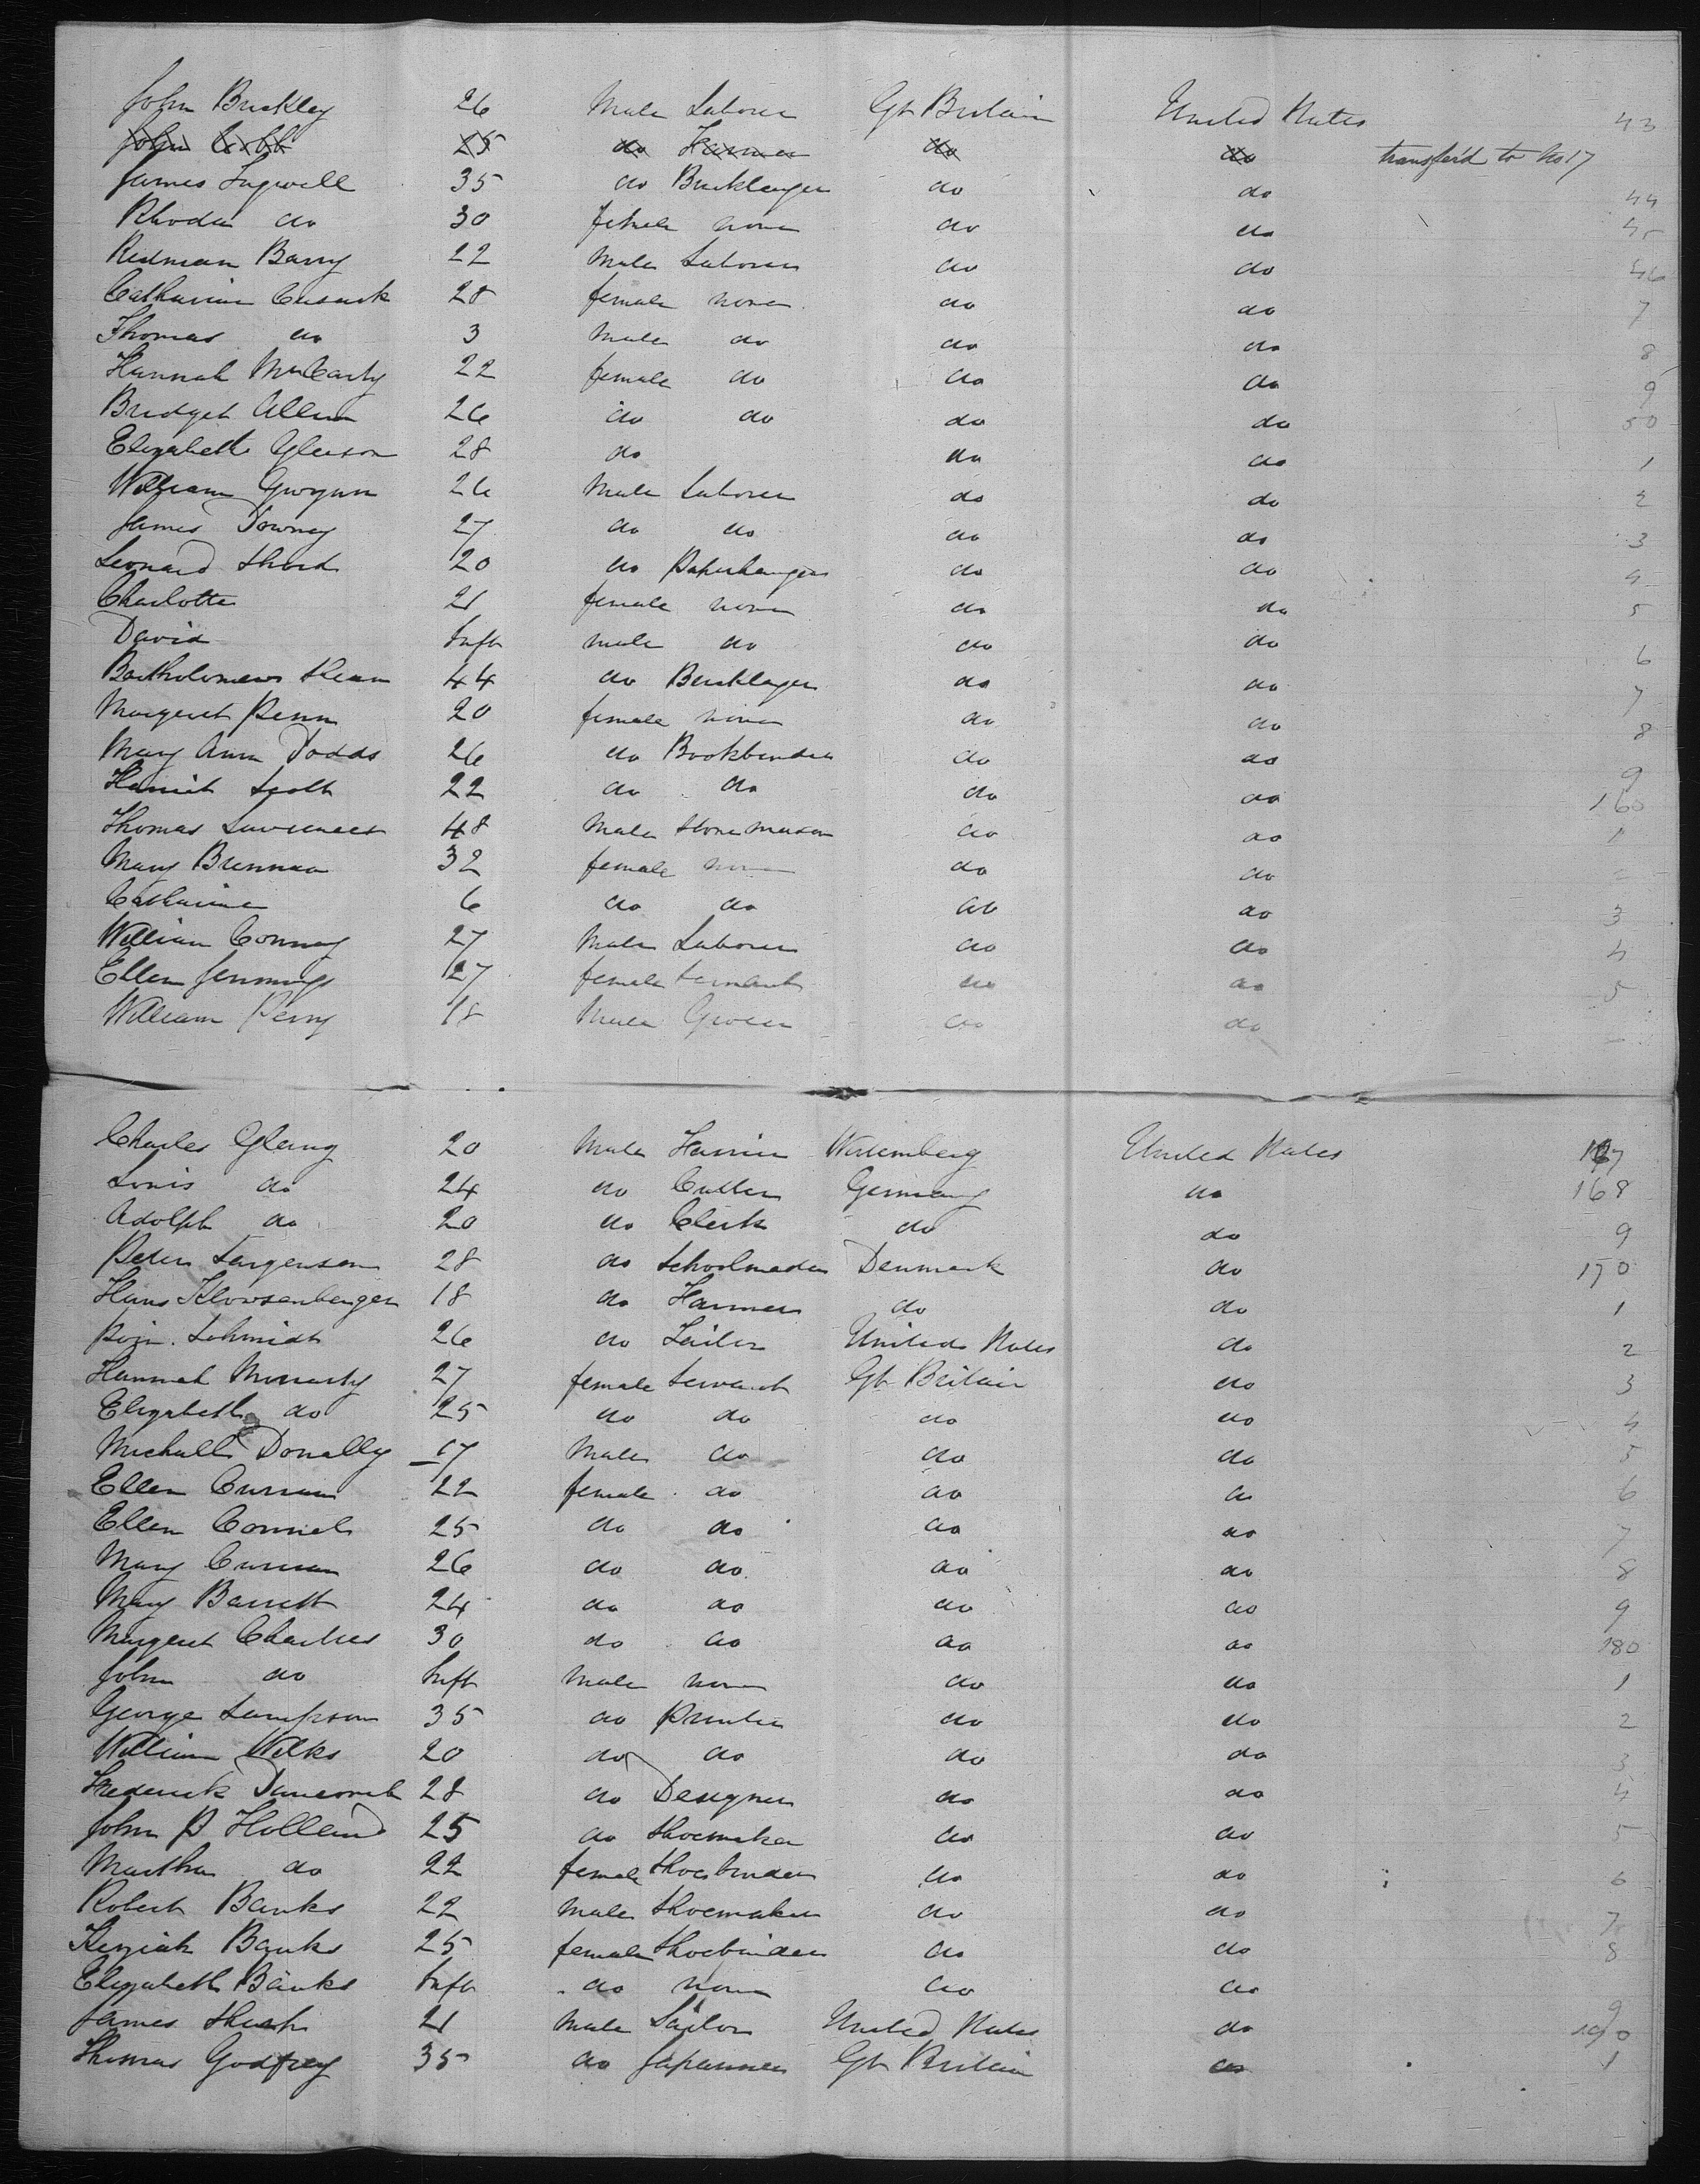 John Buckley 26 Male Laborer Gt Britain United States 43
John Cobb 25 do Farmer do do transferd to No 17
James Ingwell 35 do Bricklayer do do 44
Rhoda do 30 female none do do 45
Redman Barry 22 Male Laborer do do 46
Catharine Cusack 28 female none do do 7
Thomas do 3 Male do do do 8
Hannah McCarty 22 female do do do 9
Bridget Allen 26 do do do do 50
Elizabeth Gleason 28 do do do 1
William Gwynn 26 Male Laborer do do 2
James Downey 27 do do do do 3
Leonard 20 do Paperhanger do do 4
Charlotte 21 female none do do 5
David Inft male do do do 6
Bartholomew 44 do Bricklayer do do 7
Margaret Penn 20 female none do do 8
Mary Ann Dodds 26 do Bookbinder do do 9
Harriet Scott 22 do do do do 160
Thomas 48 Male Stone Mason do do 1
Mary Brennan 32 female none do do 2
Catharine 6 do do do do 3
William Conway 27 Male Laborer do do 4
Ellen Jennings 27 female Servant do do 5
William Perry 18 Male Grocer do do
Charles 20 Male Wirtemberg United States 167
Louis do 24 do Cutler Germany do 168
Adolph do 20 do Clerk do do 9
Peter 28 do Denmark do 170
Hans 18 do Farmer do do 1
Schmidt 26 do United States do 2
Hannah Moriarty 27 female Servant Gt Britain do 3
Elizabeth do 25 do do do do 4
Michall Donally 17 Male do do do 5
Ellen Curran 22 female do do do 6
Ellen Connel 25 do do do do 7
Mary Curran 26 do do do do 8
Mary Barrett 24 do do do do 9
Margaret Charles 30 do do do do 180
John do Inft Male none do do 1
George Sampson 35 do Printer do do 2
William Wilks 20 do do do do 3
Frederick Duncomb 28 do Designer do do 4
John P Holland 25 do Shoemaker do do 5
Martha do 22 female Shoebinder do do 6
Robert Banks 22 Male Shoemaker do do 7
Keziah Banks 25 female Shoebinder do do 8
Elizabeth Banks Inft do none do do 9
James 21 Male Sailor United States do 190
Thomas Godfrey 35 do Japanner Gt Britain do 1